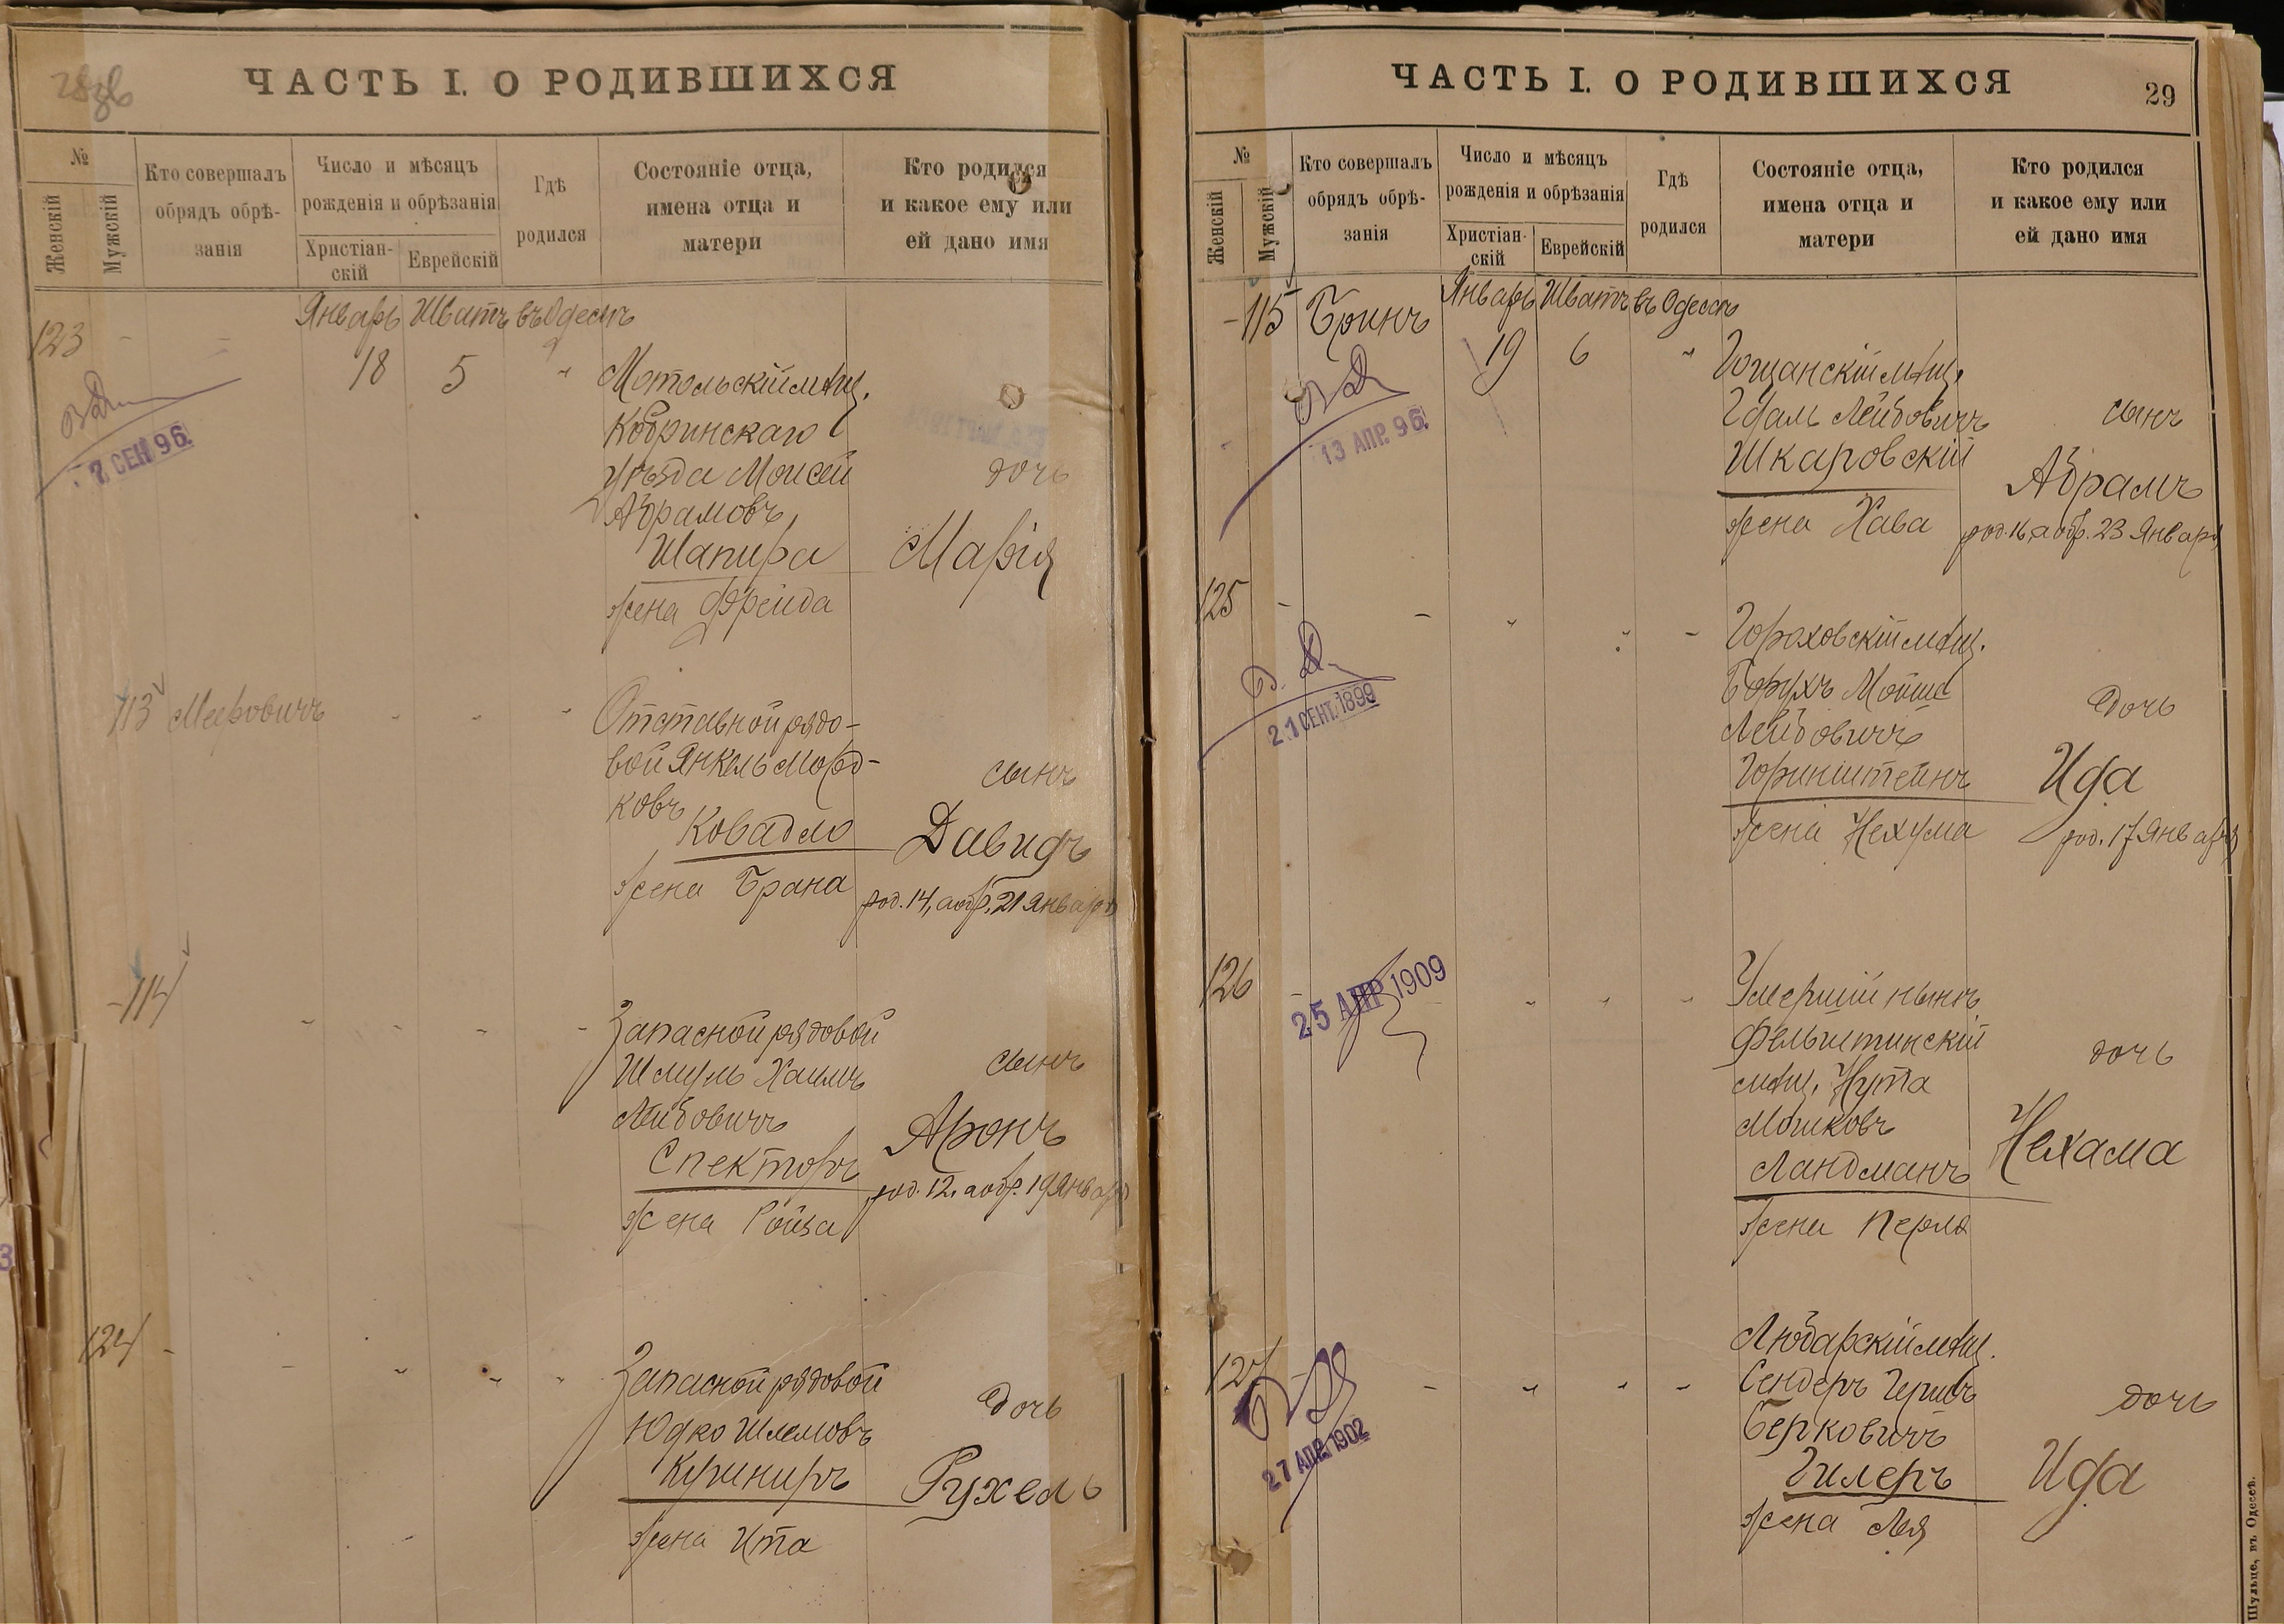 ЧАСТЬ I. О РОДИВШИХСЯ
№
Женскій
Мужскій
Кто совершалъ
обрядъ обрѣ-
занія
Число и мѣсяцъ
рожденія и обрѣзанія
Христіан-
скій
Еврейскій
Гдѣ
родился
Состояніе отца,
имена отца и
матери
Кто родился
и какое ему или
ей дано имя
Январь Шватъ въ Одессѣ
123 - - 18 5 "
Мотольскій мѣщ.
Кобринскаго
уѣзда Моисей
Абрамовъ
Шапира
жена Фрейда
дочь
Марія
7. СЕН 96.
113 Мееровичъ
Отставной рядо-
вой Янкель Морд-
ковъ
Ковадло
жена Брана
сынъ
Давидъ
род. 14, а обр. 21 Января
114
Запасной рядовой
Шмуль Хаимъ
Лейбовичъ
Спекторъ
жена Ройза
сынъ
Аронъ
род. 12, а обр. 19 Января
124
Запасной рядовой
Юдко Шлемовъ
Кушниръ
жена Ита
дочь
Рухель
ЧАСТЬ I. О РОДИВШИХСЯ
29
№
Женскій
Мужскій
Кто совершалъ
обрядъ обрѣ-
занія
Число и мѣсяцъ
рожденія и обрѣзанія
Христіан-
скій
Еврейскій
Гдѣ
родился
Состояніе отца,
имена отца и
матери
Кто родился
и какое ему или
ей дано имя
Январь Шватъ въ Одессѣ
115 Бринъ 19 6 "
Гощанскій мѣщ.
Гдаль Лейбовичъ
Шкаровскій
жена Хава
сынъ
Абрамъ
род. 16, а обр. 23 Января
13 АПР. 96.
125
Гороховскій мѣщ.
Борухъ Мойше
Лейбовичъ
Горинштейнъ
жена Нехума
дочь
Ида
род. 17 Января
21 СЕНТ. 1899
126
Умершій нынѣ
Фельштинскій
мѣщ. Нута
Мошковъ
Ландманъ
жена Перля
дочь
Нехама
25 АПР 1909
127
Любарскій мѣщ.
Сендеръ Гершъ
Берковичъ
Гилеръ
жена Лея
дочь
Ида
27 АПР. 1902
Шульце, въ Одессѣ.